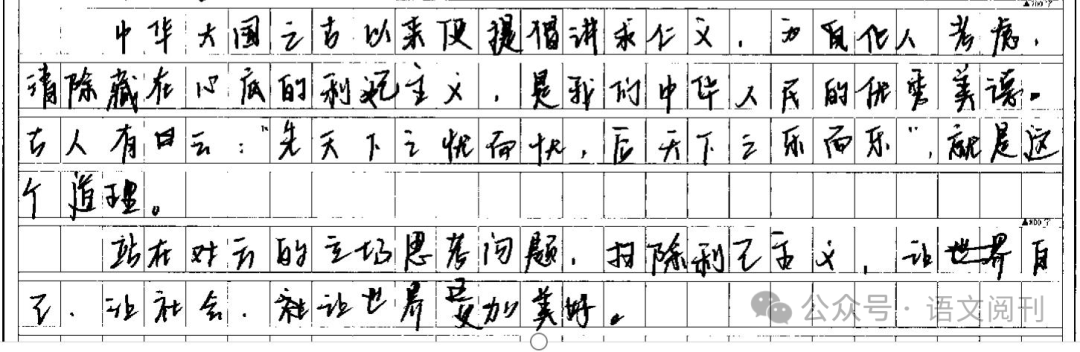 ▲700字
中华大国之古以来便提倡讲求仁义，为他人考虑，
清除藏在心底的利己主义，是我们中华人民的优秀美德。
古人有曰云：“先天下之忧而忧，后天下之乐而乐”，就是这
个道理。
▲800字
站在对方的立场思考问题，扫除利己主义，让世界自
己，让社会，让世界更加美好。
公众号·语文阅刊